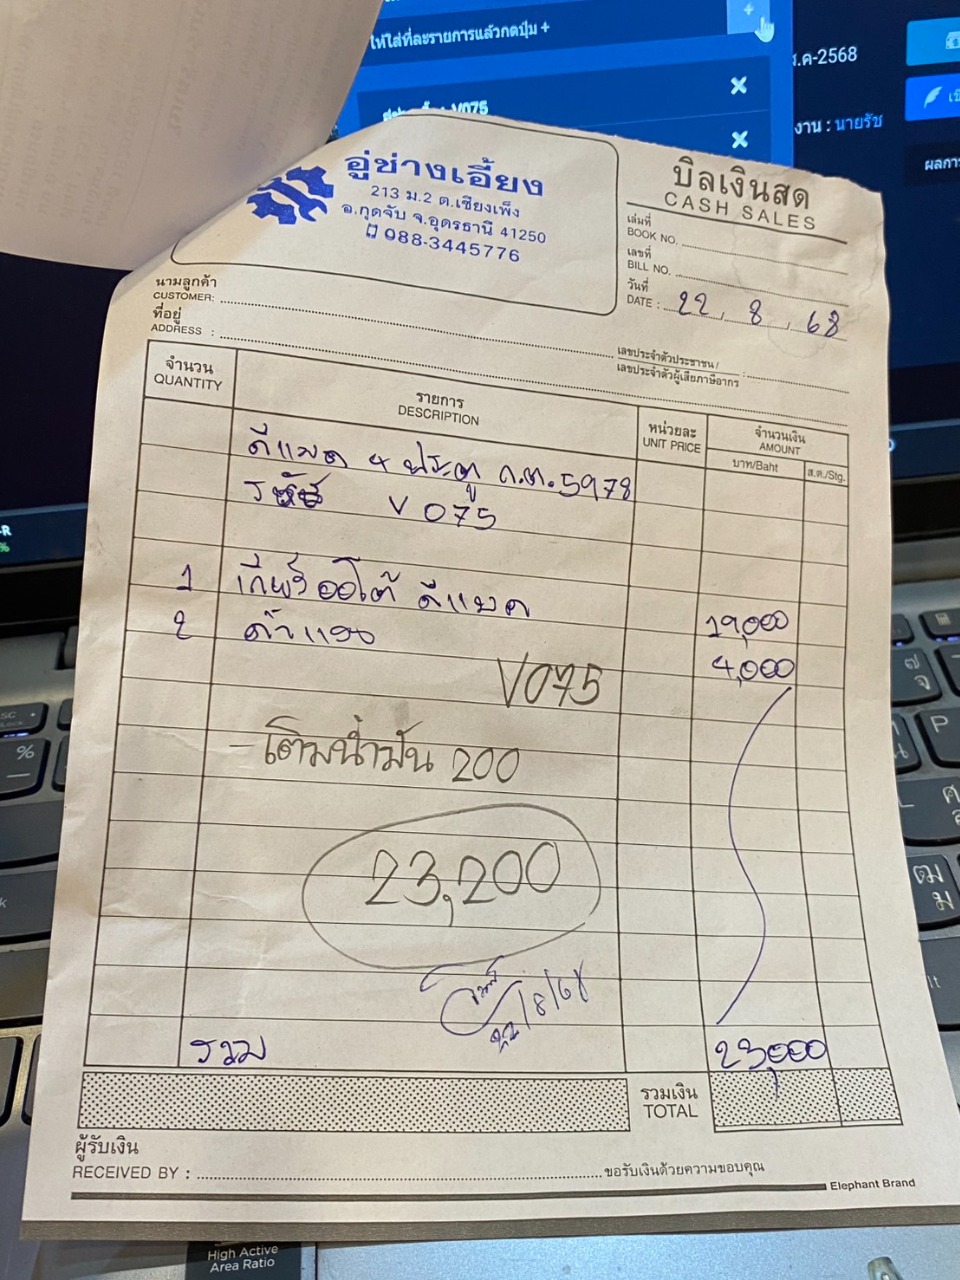 ให้ใส่ทีละรายการแล้วกดปุ่ม +
V075
ส.ค-2568
งาน : นายรัช
ผลการ
อู่ช่างเอี้ยง
213 ม.2 ต.เชียงเพ็ง
อ.กุดจับ จ.อุดรธานี 41250
088-3445776
บิลเงินสด
CASH SALES
เล่มที่
BOOK NO.
เลขที่
BILL NO.
วันที่
DATE : 22 , 8 , 68
นามลูกค้า
CUSTOMER:
ที่อยู่
ADDRESS :
เลขประจำตัวประชาชน /
เลขประจำตัวผู้เสียภาษีอากร :
จำนวน
QUANTITY
รายการ
DESCRIPTION
หน่วยละ
UNIT PRICE
จำนวนเงิน
AMOUNT
บาท/Baht
ส.ต./Stg.
ดีแมค 4 ประตู ถ.ต.5978
รหัส V 075
1 เกียร์ออโต้ ดีแมค 19,000
2 ค่าแรง 4,000
V075
- เติมน้ำมัน 200
23,200
22/8/68
รวม 23,000
รวมเงิน
TOTAL
ผู้รับเงิน
RECEIVED BY :
ขอรับเงินด้วยความขอบคุณ
Elephant Brand
High Active
Area Ratio